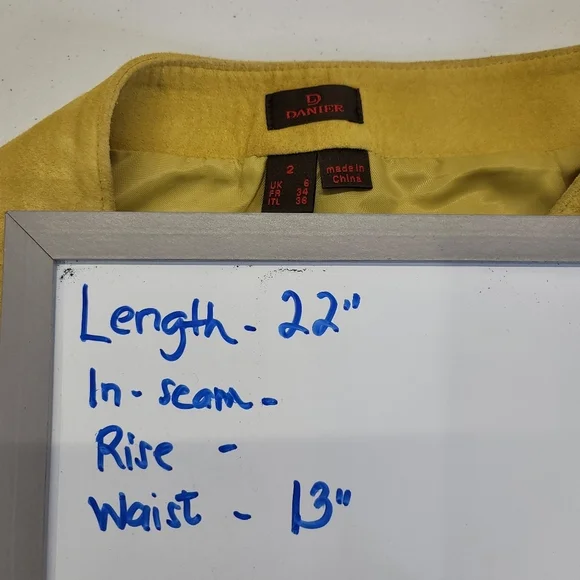 D
DANIER
2
UK 6
FR 34
ITL 36
made in
China
Length - 22"
In - seam -
Rise -
Waist - 13"